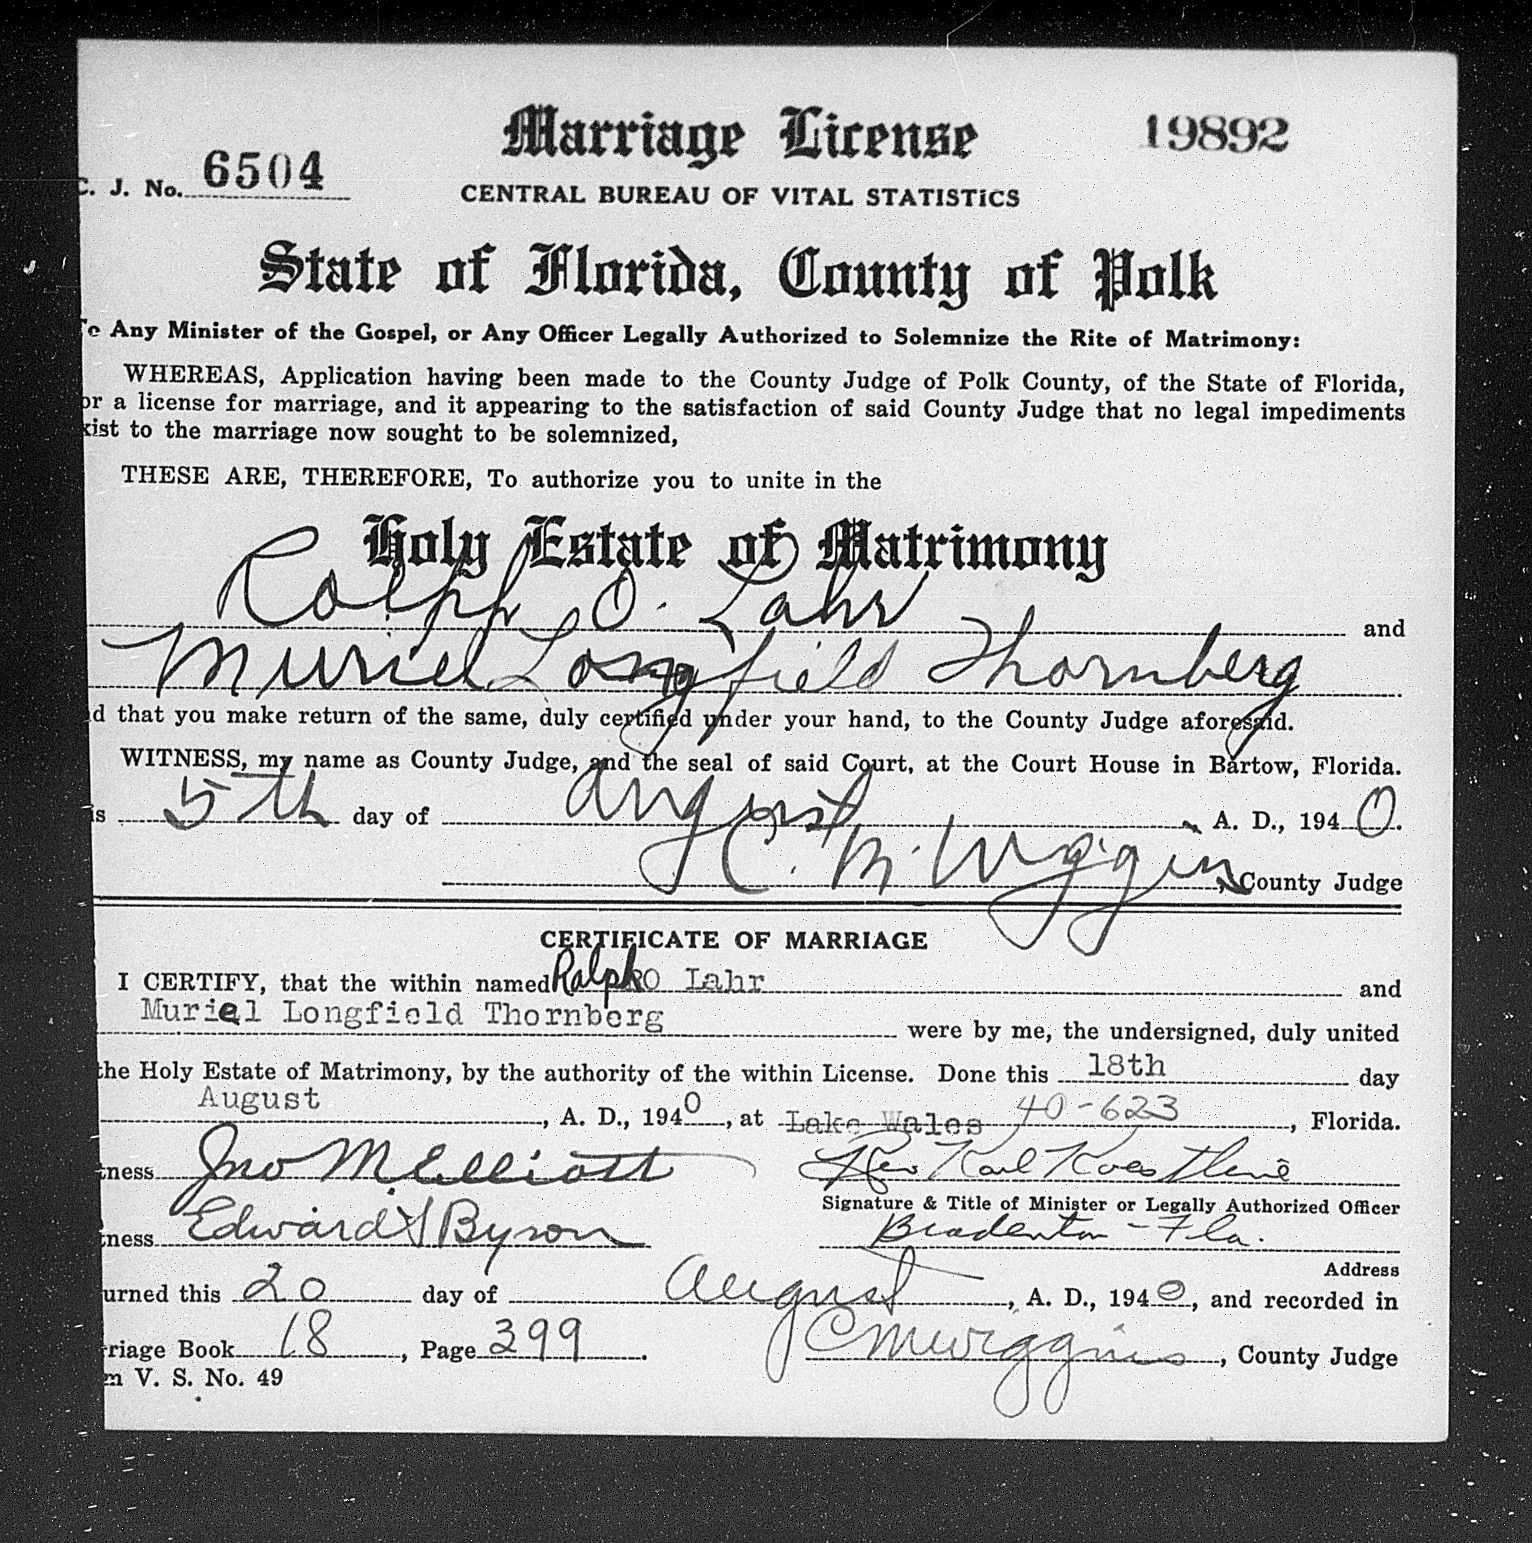 Marriage License
19892
C. J. No. 6504
CENTRAL BUREAU OF VITAL STATISTICS
State of Florida, County of Polk
To Any Minister of the Gospel, or Any Officer Legally Authorized to Solemnize the Rite of Matrimony:
WHEREAS, Application having been made to the County Judge of Polk County, of the State of Florida,
or a license for marriage, and it appearing to the satisfaction of said County Judge that no legal impediments
xist to the marriage now sought to be solemnized,
THESE ARE, THEREFORE, To authorize you to unite in the
Holy Estate of Matrimony
Ralph O. Lahr and
Muriel Longfield Thornberg
d that you make return of the same, duly certified under your hand, to the County Judge aforesaid.
WITNESS, my name as County Judge, and the seal of said Court, at the Court House in Bartow, Florida.
is 5th day of August, A. D., 1940.
C. M. Wiggins, County Judge
CERTIFICATE OF MARRIAGE
I CERTIFY, that the within named Ralph O Lahr and
Muriel Longfield Thornberg were by me, the undersigned, duly united
the Holy Estate of Matrimony, by the authority of the within License. Done this 18th day
August, A. D., 1940, at Lake Wales 40-623, Florida.
tness Jno M. Elliott Rev Karl
Signature & Title of Minister or Legally Authorized Officer
tness Edward S Byson Bradenton - Fla.
Address
urned this 20 day of August, A. D., 1940, and recorded in
rriage Book 18, Page 399. C M Wiggins, County Judge
m V. S. No. 49